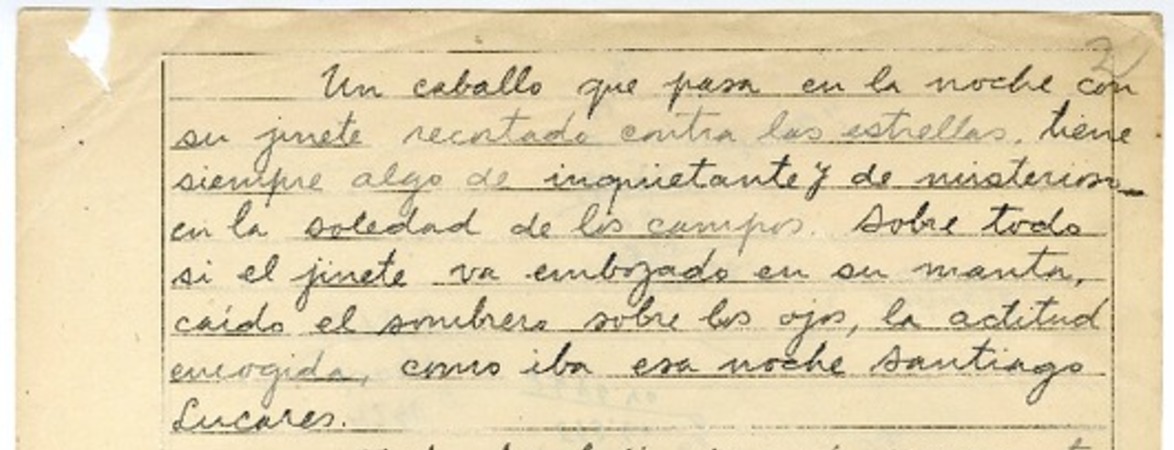 2
Un caballo que pasa en la noche con
su jinete recortado contra las estrellas, tiene
siempre algo de inquietante y de misterioso
en la soledad de los campos. Sobre todo
si el jinete va embozado en su manta,
caído el sombrero sobre los ojos, la actitud
encogida, como iba esa noche Santiago
Lucares.